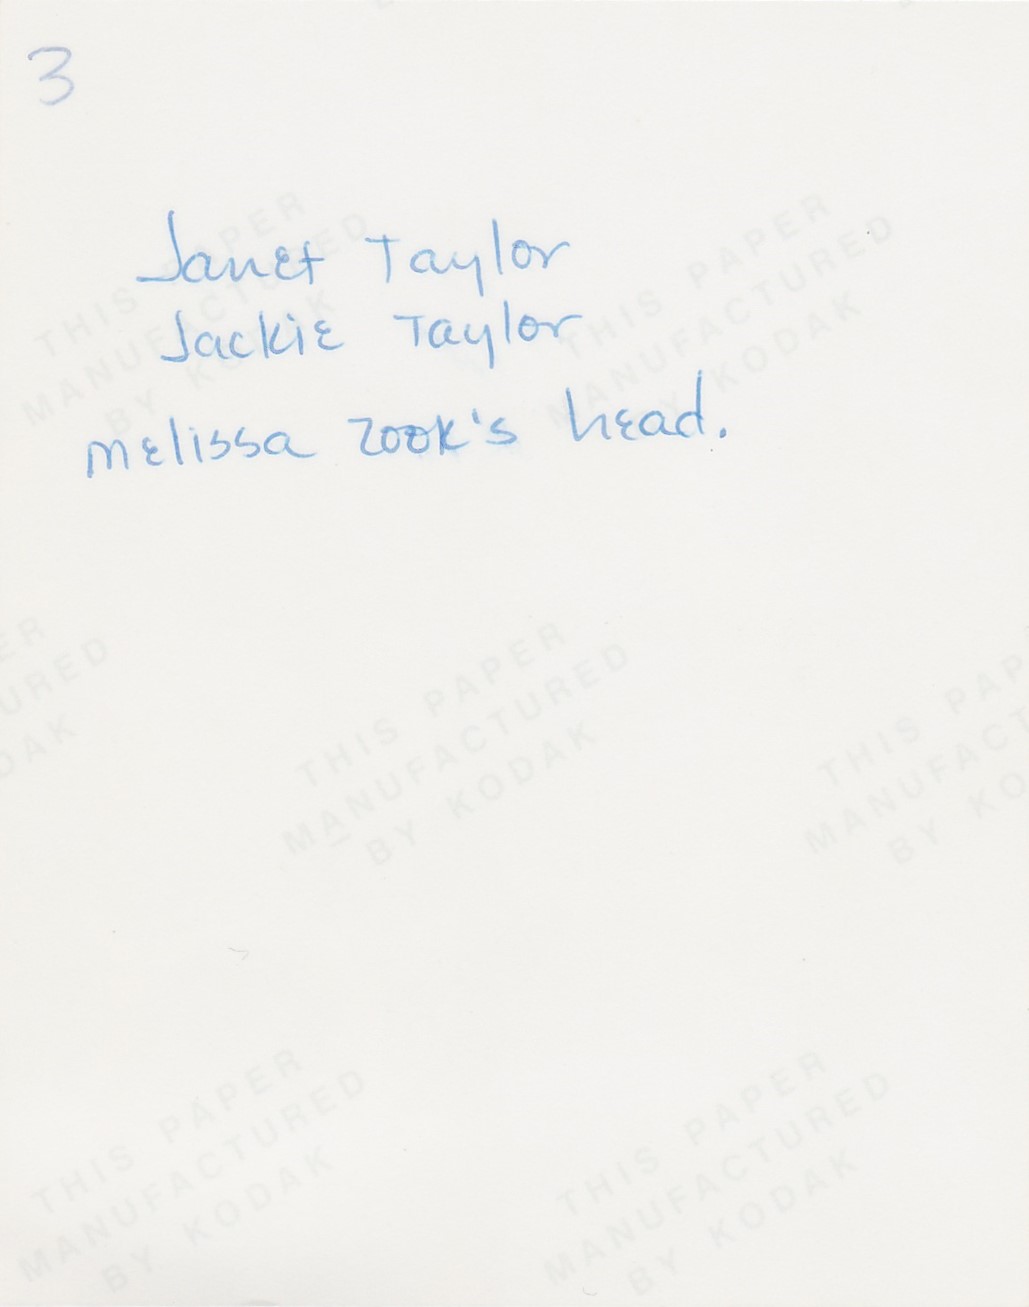 3
Janet Taylor
Jackie Taylor
melissa zook's head.
THIS PAPER
MANUFACTURED
BY KODAK
THIS PAPER
MANUFACTURED
BY KODAK
ER
URED
DAK
THIS PAPER
MANUFACTURED
BY KODAK
THIS PAP
MANUFACT
BY KO
THIS PAPER
MANUFACTURED
BY KODAK
THIS PAPER
MANUFACTURED
BY KODAK